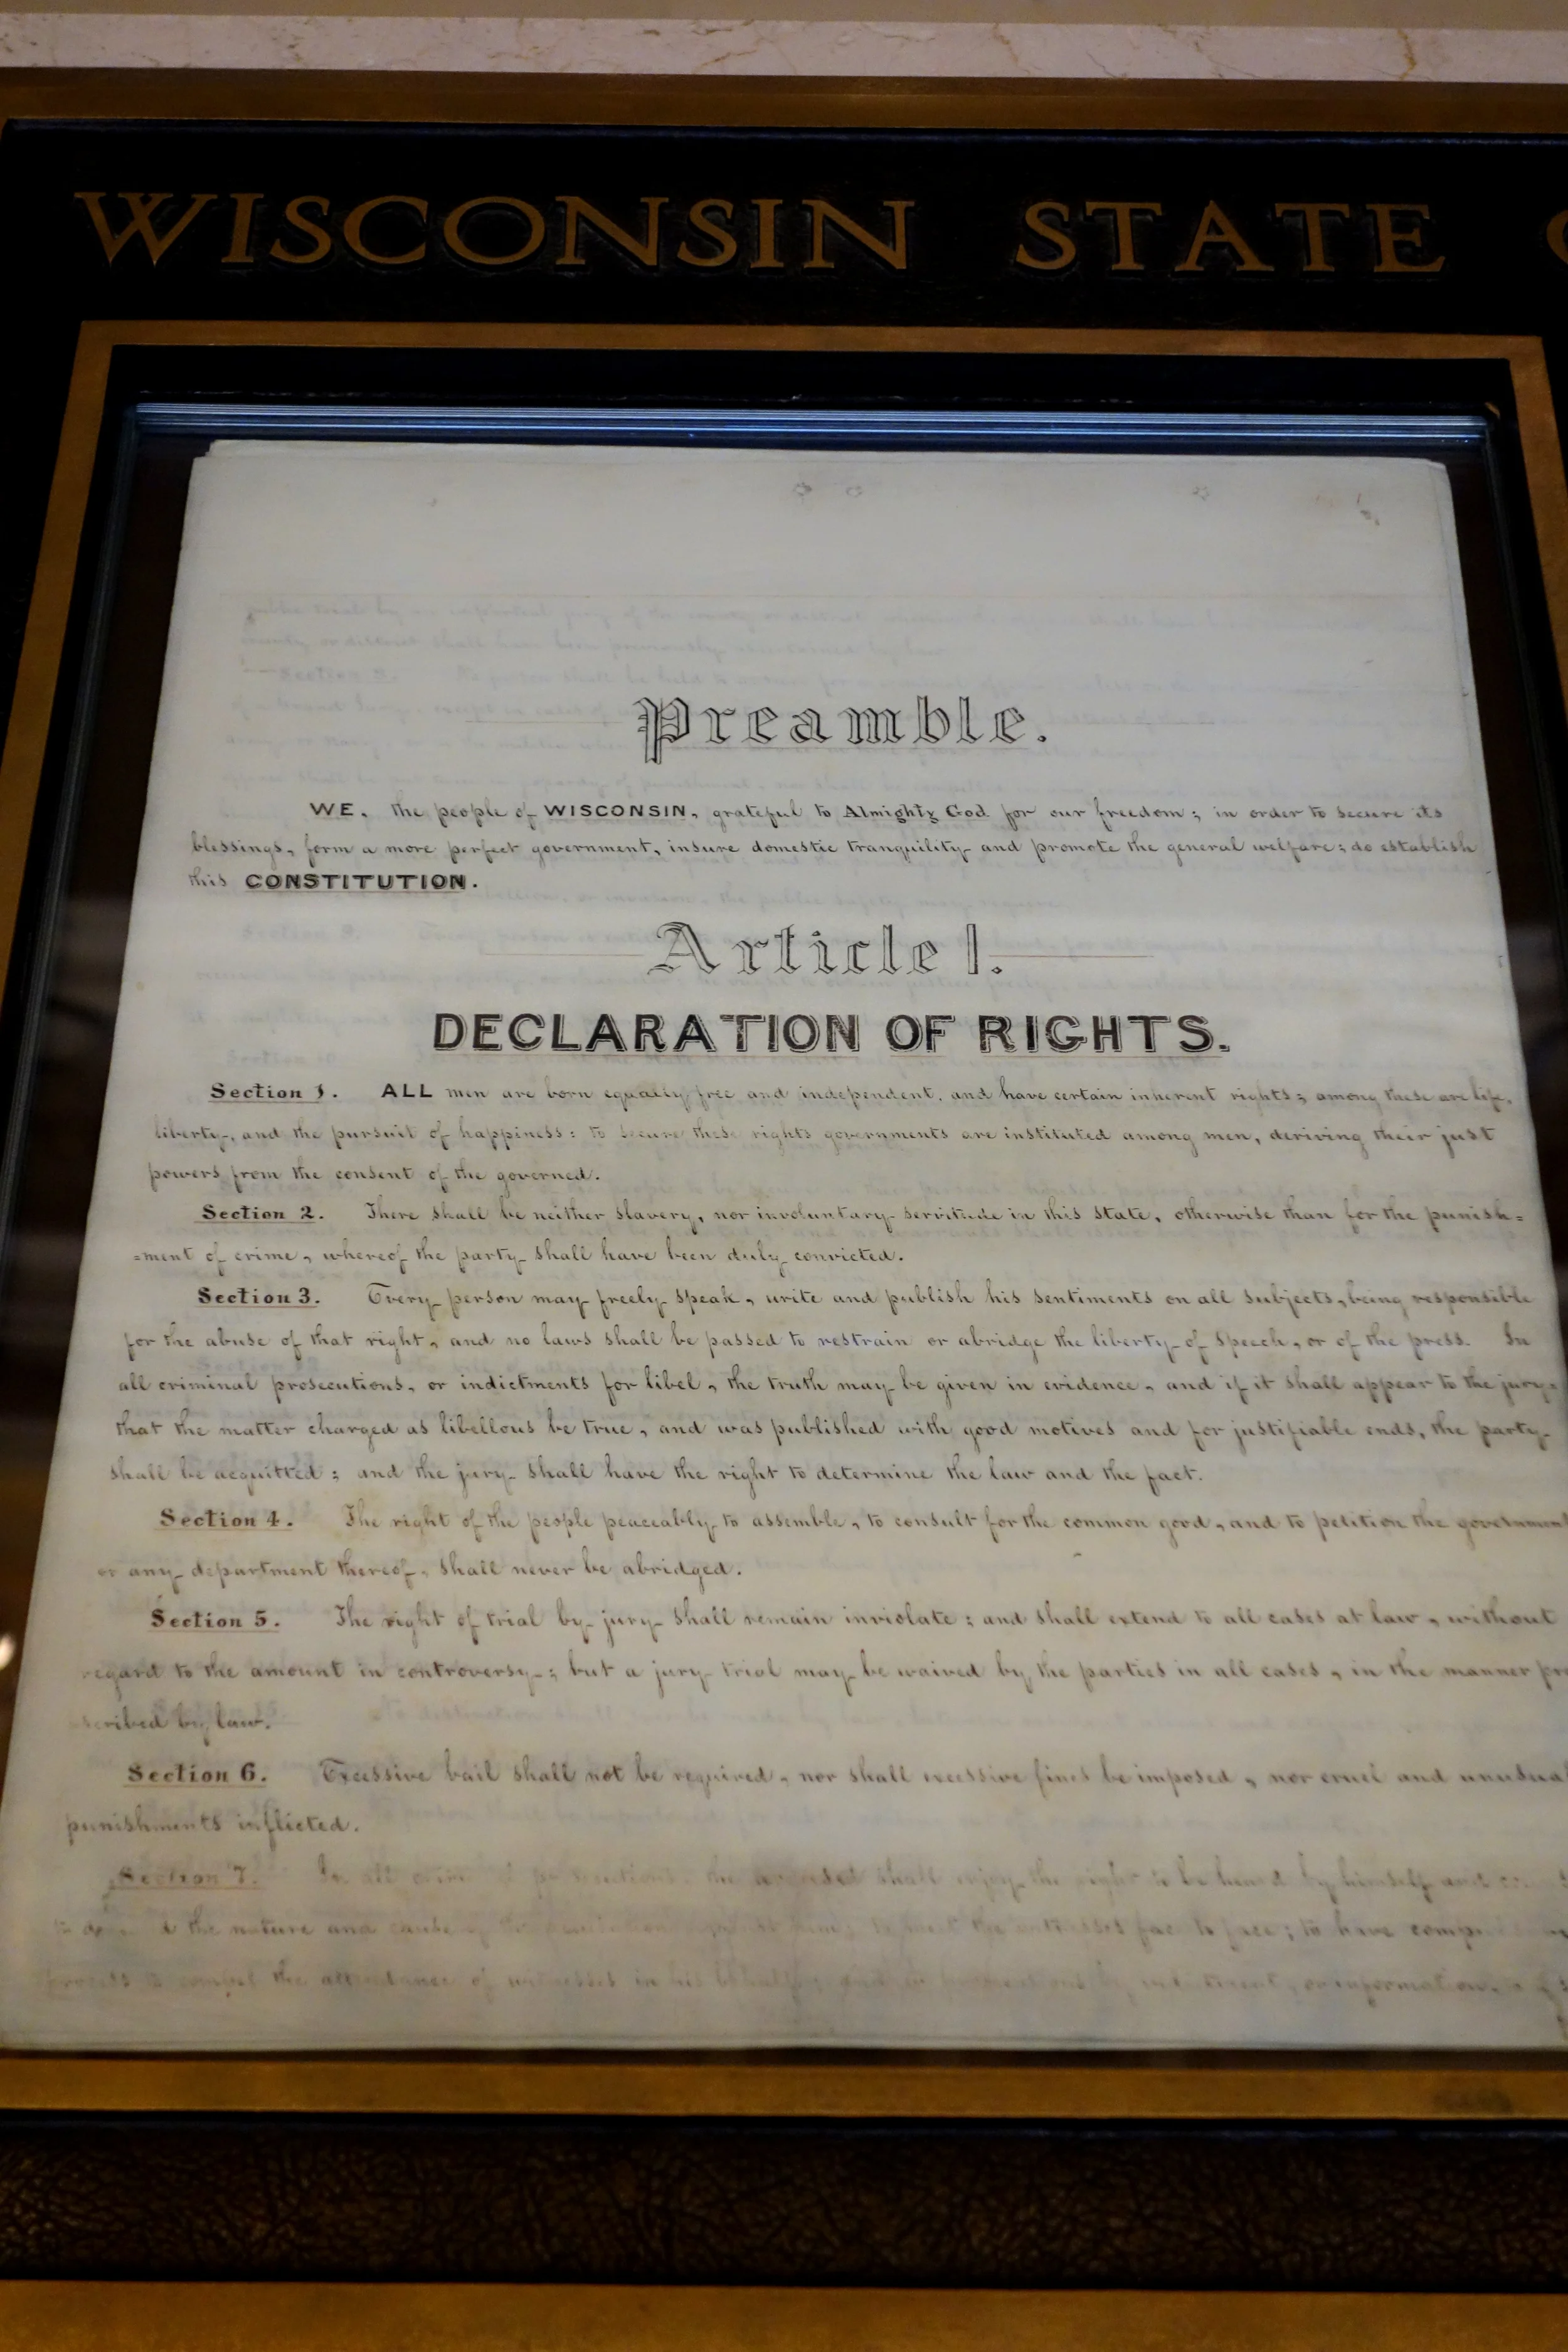 WISCONSIN STATE
Preamble.
WE, the people of WISCONSIN, grateful to Almighty God for our freedom; in order to secure its
blessings, form a more perfect government, insure domestic tranquility and promote the general welfare; do establish
this CONSTITUTION.
Article 1.
DECLARATION OF RIGHTS.
Section 1. ALL men are born equally free and independent, and have certain inherent rights; among these are life,
liberty, and the pursuit of happiness: to secure these rights governments are instituted among men, deriving their just
powers from the consent of the governed.
Section 2. There shall be neither slavery, nor involuntary servitude in this State, otherwise than for the punish=
=ment of crime, whereof the party shall have been duly convicted.
Section 3. Every person may freely speak, write and publish his sentiments on all subjects, being responsible
for the abuse of that right, and no laws shall be passed to restrain or abridge the liberty of speech, or of the press. In
all criminal prosecutions, or indictments for libel, the truth may be given in evidence, and if it shall appear to the jury,
that the matter charged as libellous be true, and was published with good motives and for justifiable ends, the party
shall be acquitted; and the jury shall have the right to determine the law and the fact.
Section 4. The right of the people peaceably to assemble, to consult for the common good, and to petition the government
or any department thereof, shall never be abridged.
Section 5. The right of trial by jury shall remain inviolate; and shall extend to all cases at law, without
regard to the amount in controversy; but a jury trial may be waived by the parties in all cases, in the manner pre
scribed by law.
Section 6. Excessive bail shall not be required, nor shall excessive fines be imposed, nor cruel and unusual
punishments inflicted.
Section 7. In all the accused shall enjoy the right to be heard by himself and
the nature and cause to meet the witnesses face to face; to have
compel the attendance of witnesses in his behalf, and in by indictment, or information,